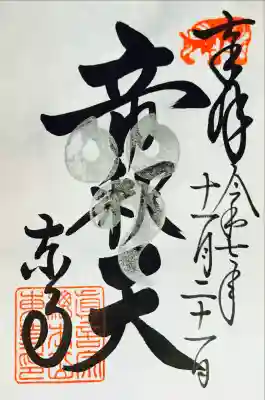 奉拝
令和七年
十一月二十一日
帝釈天
東寺